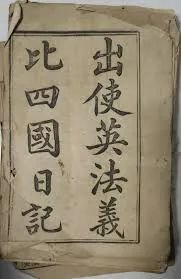 出使英法義
比四國日記